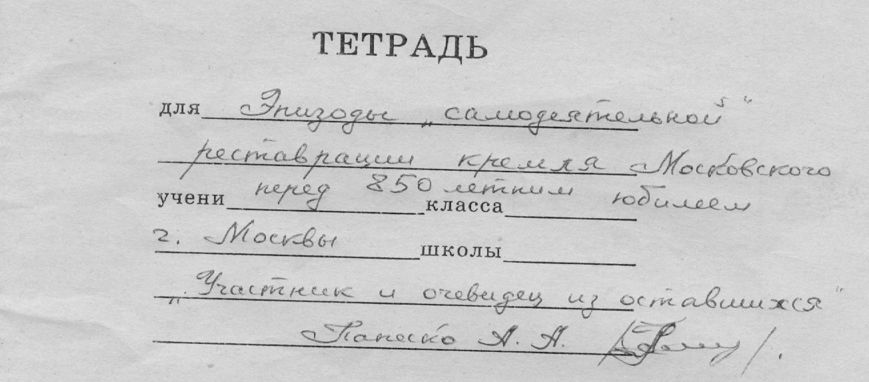 ТЕТРАДЬ
для Эпизоды „самодеятельной“
реставрации кремля Московского
учени перед 850 летним класса юбилеем
г. Москвы школы
„Участник и очевидец из оставшихся“
А. А.